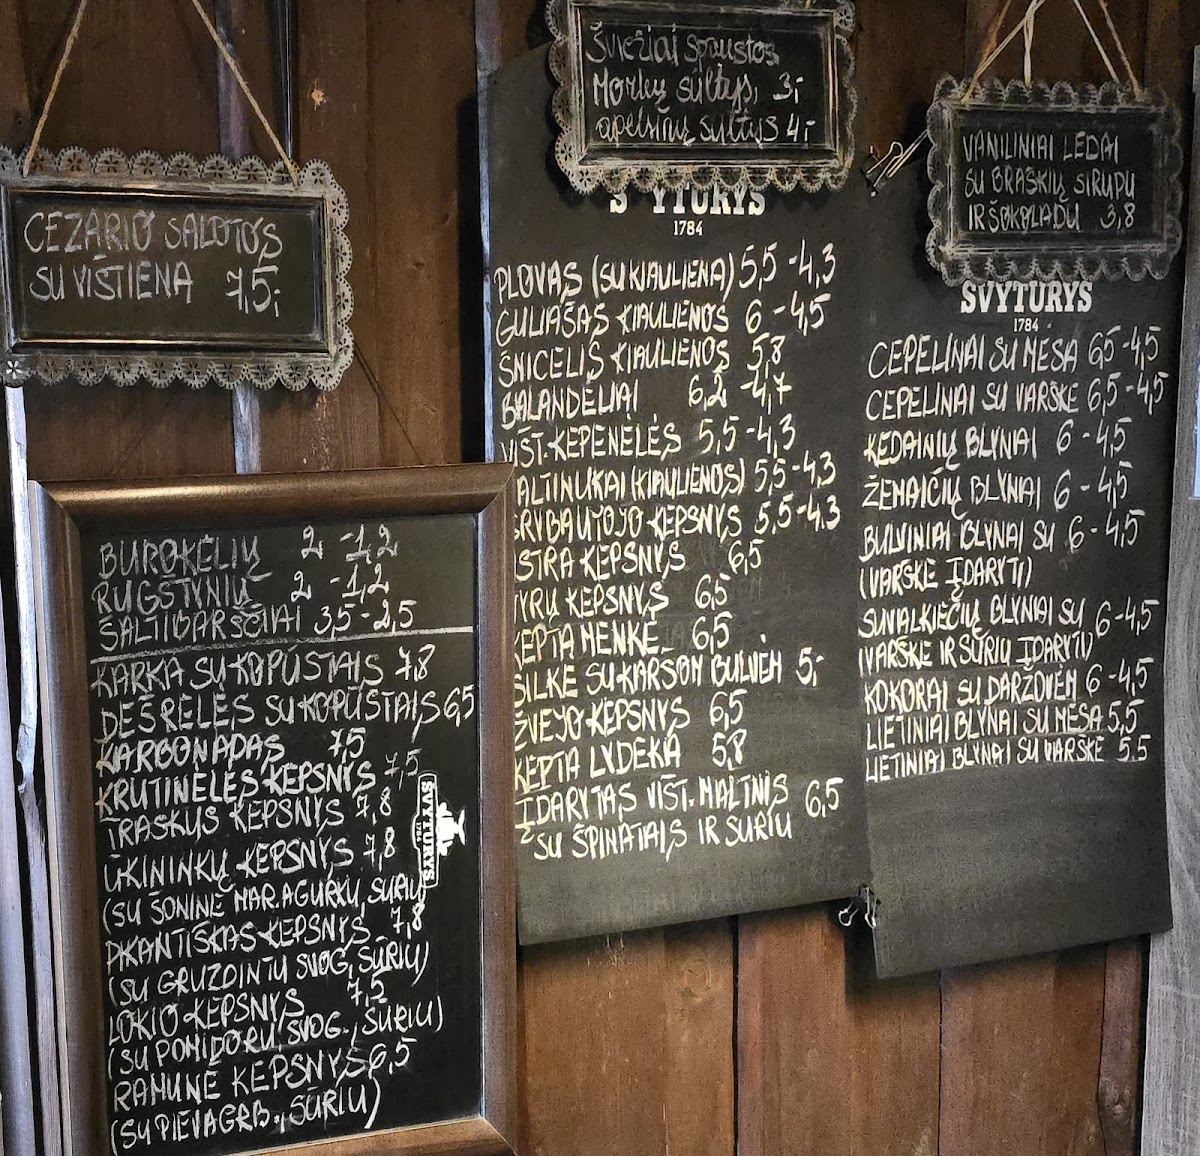 CEZARIO SALOTOS
SU VIŠTIENA 7,5;
BUROKĖLIŲ 2 -1,2
RŪGŠTYNIŲ 2 -1,2
ŠALTIBARŠČIAI 3,5-2,5
KARKA SU KOPŪSTAIS 7,8
DEŠRELĖS SU KOPŪSTAIS 6,5
KARBONADAS 7,5
KRŪTINĖLĖS KEPSNYS 7,5
TRAŠKUS KEPSNYS 7,8
ŪKININKŲ KEPSNYS 7,8
(SU ŠONINĖ MAR.AGURKŲ, SŪRIU)
PIKANTIŠKAS KEPSNYS 7,8
(SU GRUZDINTU SVOG, SŪRIU)
LOKIO KEPSNYS 7,5
(SU POMIDORU, SVOG., SŪRIU)
RAMUNĖ KEPSNYS 6,5
(SU PIEVAGRB., SŪRIU)
ŠVYTURYS
1784
Šviežiai spaustos
Morkų sultys, 3,-
apelsinų sultys 4,-
YTURYS
1784
PLOVAS (SU KIAULIENA) 5,5 -4,3
GULIAŠAS KIAULIENOS 6 -4,5
ŠNICELIS KIAULIENOS 5,8
BALANDĖLIAI 6,2 -4,7
VIŠT. KEPENĖLĖS 5,5-4,3
ALTINUKAI (KIAULIENOS) 5,5-4,3
GRYBAUTOJO KEPSNYS 5,5-4,3
STRA KEPSNYS 6,5
YRŲ KEPSNYS 6,5
KEPTA MENKĖ 6,5
SILKĖ SU KARŠOM BULVĖM 5,-
ŽVEJO KEPSNYS 6,5
KEPTA LYDEKA 5,8
ĮDARYTAS VIŠT. MALTNIS 6,5
SU ŠPINATAIS IR SŪRIU
VANILINIAI LEDAI
SU BRAŠKIŲ SIRUPU
IR ŠOKOLADU 3,8
ŠVYTURYS
1784
CEPELINAI SU MĖSA 6,5 -4,5
CEPELINAI SU VARŠKE 6,5 -4,5
KĖDAINIŲ BLYNAI 6 -4,5
ŽEMAIČIŲ BLYNAI 6 -4,5
BULVINIAI BLYNAI SU 6 -4,5
(VARŠKE ĮDARYTI)
SUVALKIEČIŲ BLYNAI SU 6-4,5
(VARŠKE IR SŪRIU ĮDARYTI)
KOKORAI SU DARŽOVĖM 6 -4,5
LIETINIAI BLYNAI SU MĖSA 5,5
LIETINIAI BLYNAI SU VARŠKE 5,5